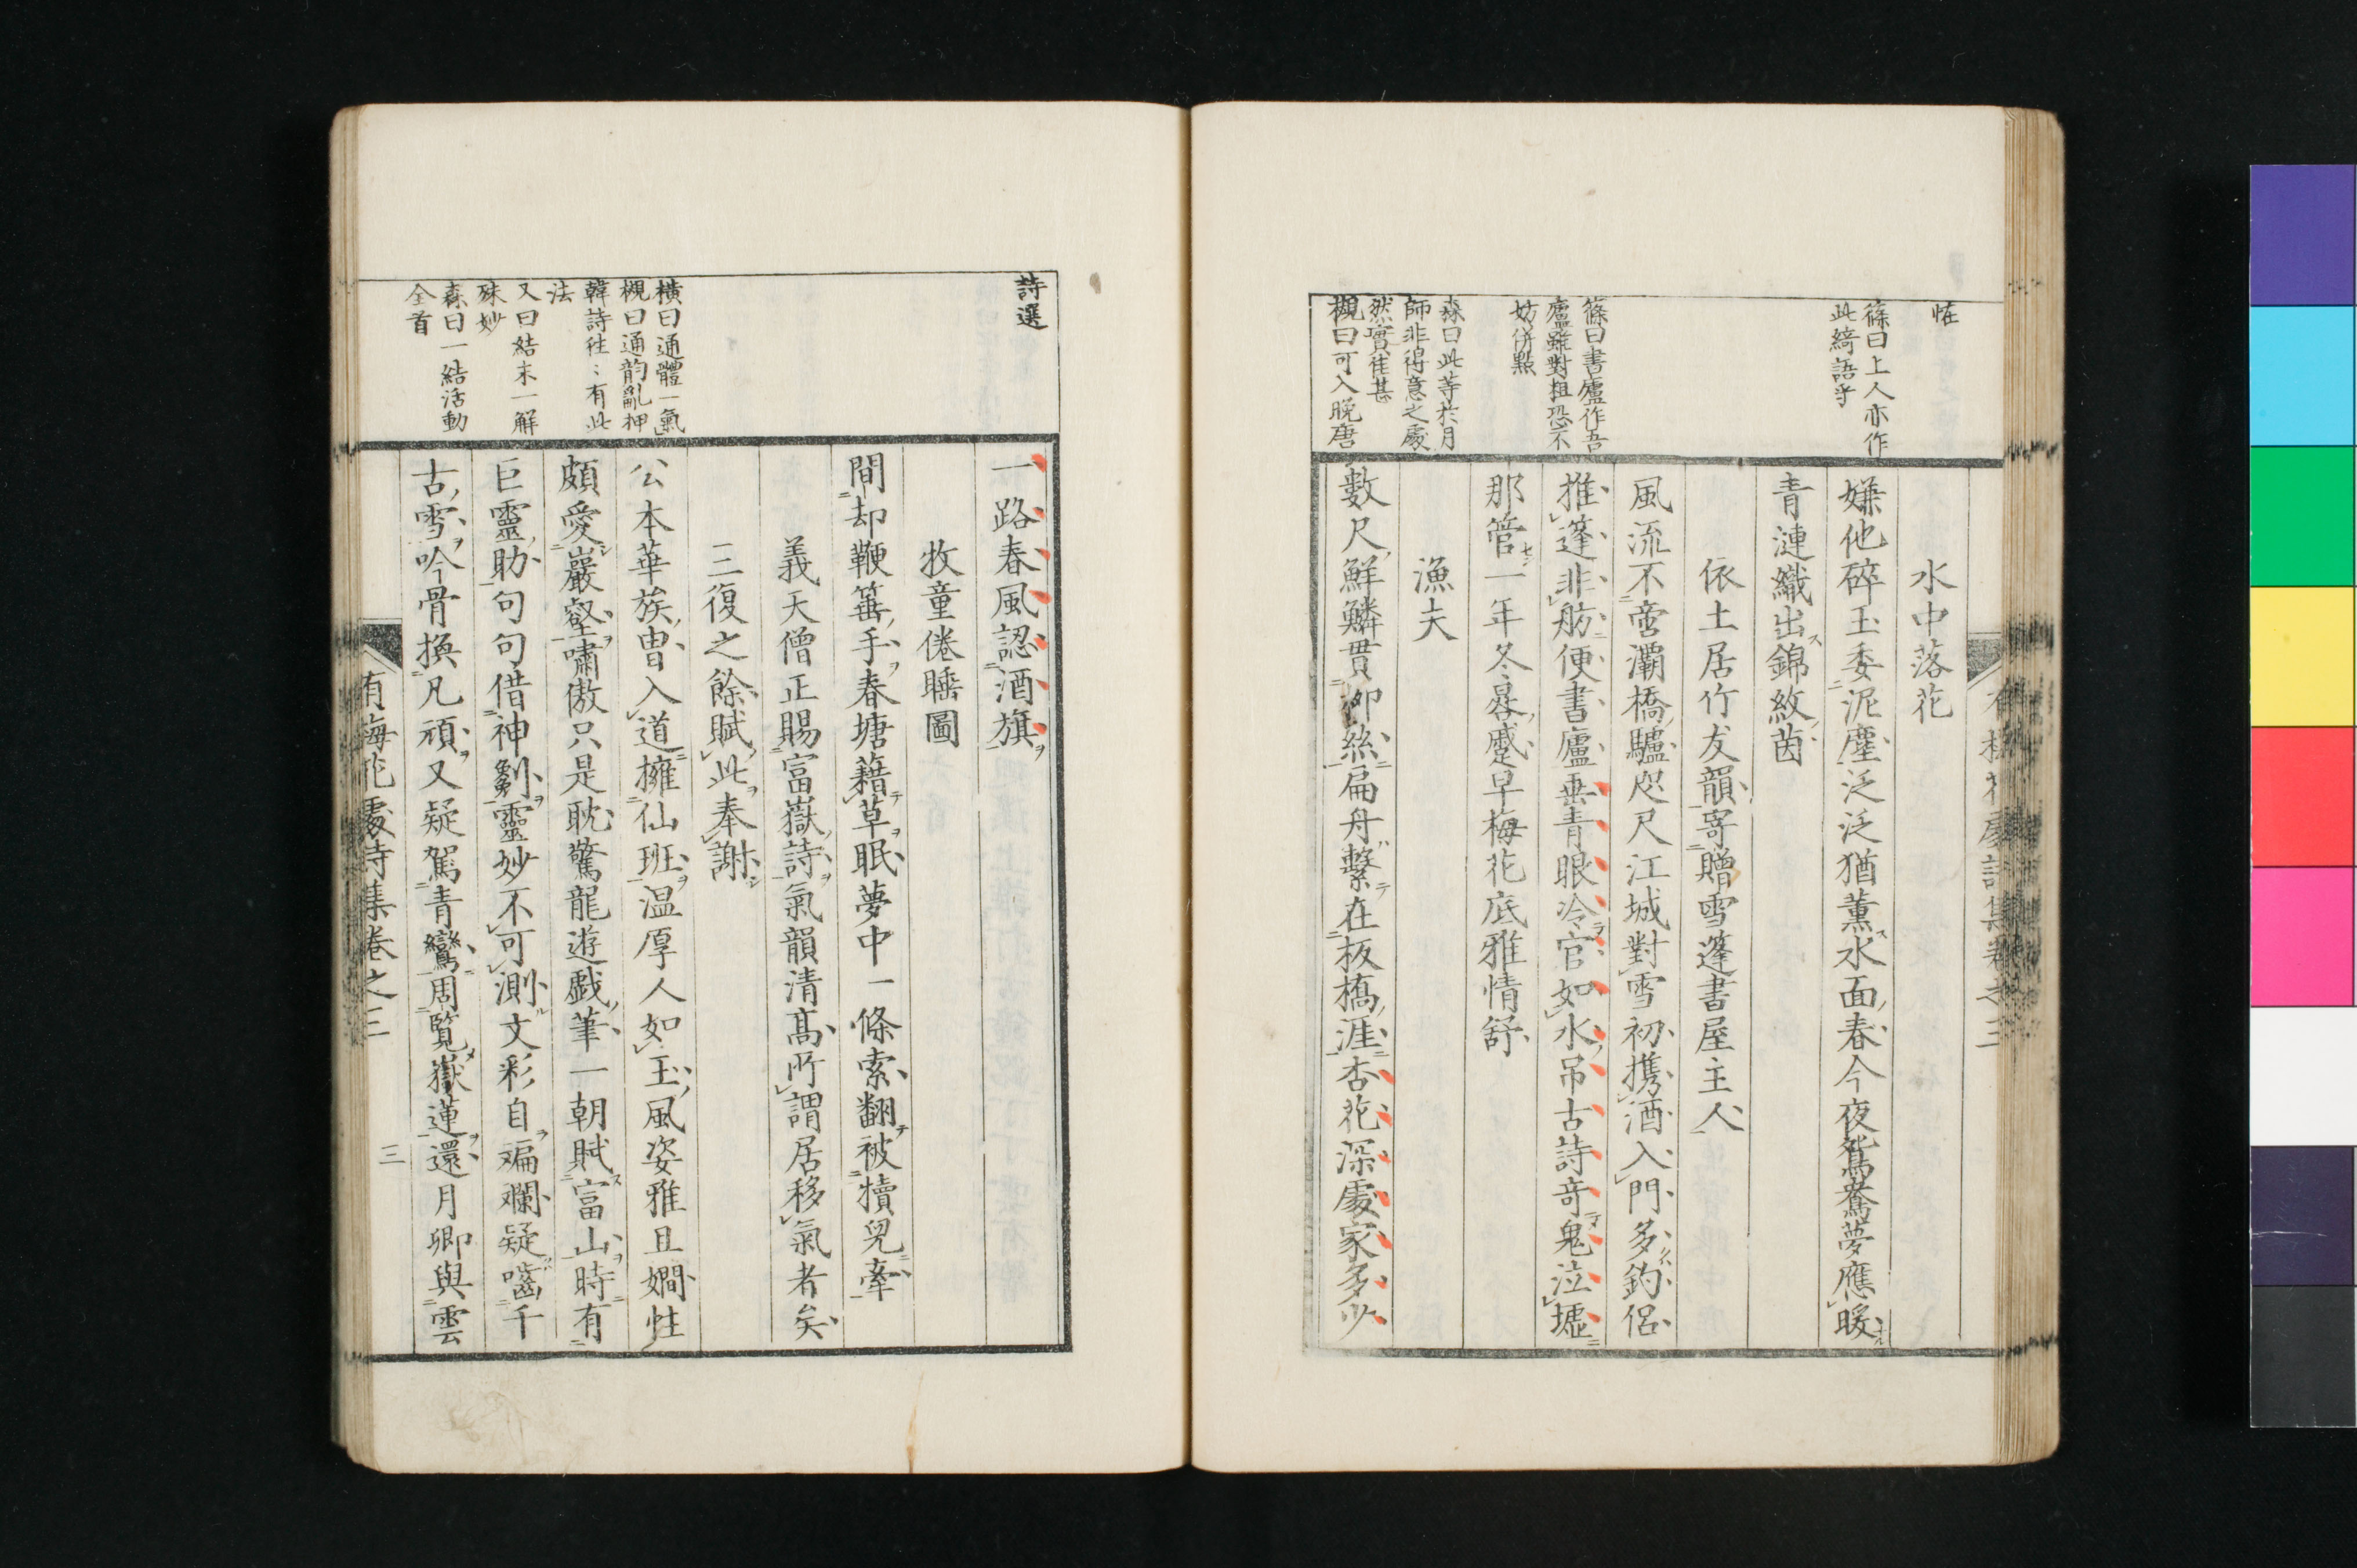 怪
篠曰上人亦作
此綺語乎
篠曰書廬作吾
廬雖對粗恐不
妨併點
森曰此等於月
師非得意之處
然實佳甚
槻曰可入晩唐
水中落花
嫌他碎玉委泥塵泛泛猶薫水面春今夜鴛鴦夢應暖
青漣織出錦紋茵
依土居竹友韻寄贈雪篷書屋主人
風流不啻灞橋驢咫尺江城對雪初携酒入門多釣侶
推篷非舫便書廬垂青眼冷官如水吊古詩奇鬼泣墟
那管一年冬晷蹙早梅花底雅情舒
漁夫
數尺鮮鱗貫柳絲扁舟繫在板橋涯杏花深處家多少
詩選
橫曰通體一氣
槻曰通韵亂押
韓詩徃〻有此
法
又曰結末一解
殊妙
森曰一結活動
全首
一路春風認酒旗
牧童倦睡圖
閒却鞭箠手春塘藉草眠夢中一條索翻被犢兒牽
義天僧正賜富嶽詩氣韻清高所謂居移氣者矣
三復之餘賦此奉謝
公本華族曾入道擁仙班温厚人如玉風姿雅且嫺性
頗愛巖壑嘯傲只是耽驚龍遊戯筆一朝賦富山時有
巨靈助句句借神剜靈妙不可測文彩自斒斕疑嚙千
古雪吟骨換凡頑又疑駕青鸞周覽嶽蓮還月卿與雲
有梅花處詩集卷之三
三